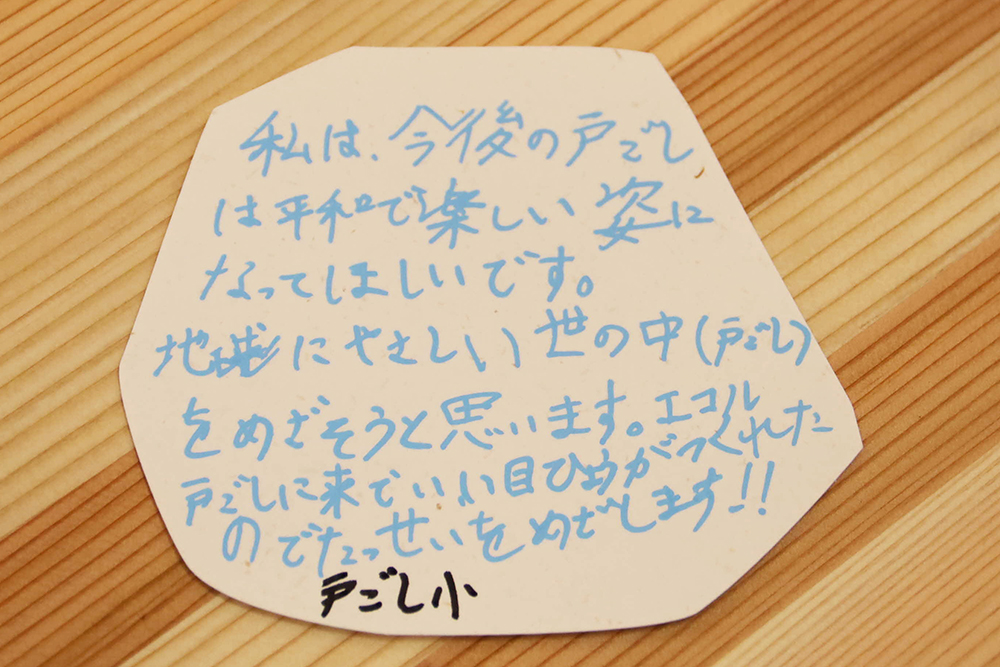 私は、今後の戸ごし
は平和で楽しい姿に
なってほしいです。
地球にやさしい世の中(戸ごし)
をめざそうと思います。エコル
戸ごしに来ていい目ひょうがつくれた
のでたっせいをめざします!!
戸ごし小